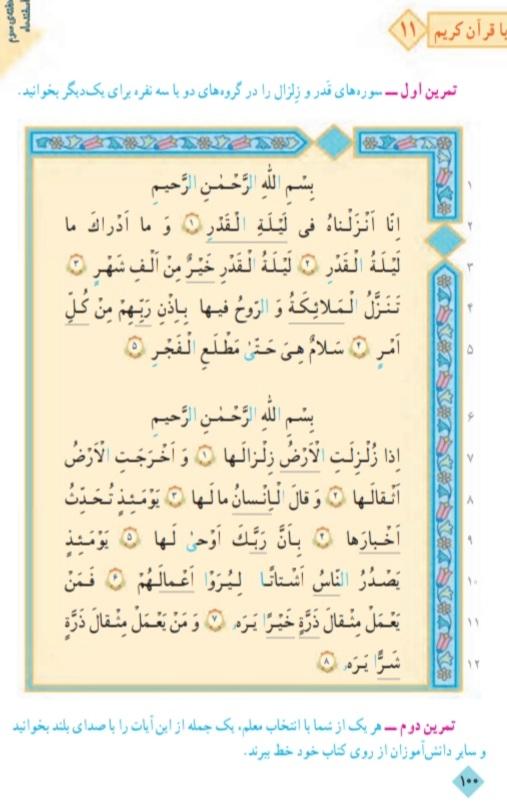 هفته‌ی سوم
اسفندماه
با قرآن کریم ۱۱
تمرین اول ــ سوره‌های قَدر و زِلزال را در گروه‌های دو یا سه نفره برای یک‌دیگر بخوانید.
بِسْمِ اللّٰهِ الرَّحْمٰنِ الرَّحیمِ ۱
اِنّا اَنْزَلْناهُ فی لَیْلَةِ الْقَدْرِ ﴿۱﴾ وَ ما اَدْراكَ ما ۲
لَیْلَةُ الْقَدْرِ ﴿۲﴾ لَیْلَةُ الْقَدْرِ خَیْرٌ مِنْ اَلْفِ شَهْرٍ ﴿۳﴾ ۳
تَنَزَّلُ الْمَلائِكَةُ وَ الرّوحُ فیها بِاِذْنِ رَبِّهِمْ مِنْ كُلِّ ۴
اَمْرٍ ﴿۴﴾ سَلامٌ هِیَ حَتّیٰ مَطْلَعِ الْفَجْرِ ﴿۵﴾ ۵
بِسْمِ اللّٰهِ الرَّحْمٰنِ الرَّحیمِ ۶
اِذا زُلْزِلَتِ الْاَرْضُ زِلْزالَها ﴿۱﴾ وَ اَخْرَجَتِ الْاَرْضُ ۷
اَثْقالَها ﴿۲﴾ وَ قالَ الْاِنْسانُ ما لَها ﴿۳﴾ یَوْمَئِذٍ تُحَدِّثُ ۸
اَخْبارَها ﴿۴﴾ بِاَنَّ رَبَّكَ اَوْحیٰ لَها ﴿۵﴾ یَوْمَئِذٍ ۹
یَصْدُرُ النّاسُ اَشْتاتًا لِیُرَوْا اَعْمالَهُمْ ﴿۶﴾ فَمَنْ ۱۰
یَعْمَلْ مِثْقالَ ذَرَّةٍ خَیْرًا یَرَهُ ﴿۷﴾ وَ مَنْ یَعْمَلْ مِثْقالَ ذَرَّةٍ ۱۱
شَرًّا یَرَهُ ﴿۸﴾ ۱۲
تمرین دوم ــ هر یک از شما با انتخاب معلم، یک جمله از این آیات را با صدای بلند بخوانید
و سایر دانش‌آموزان از روی کتاب خود خط ببرند.
۱۰۰